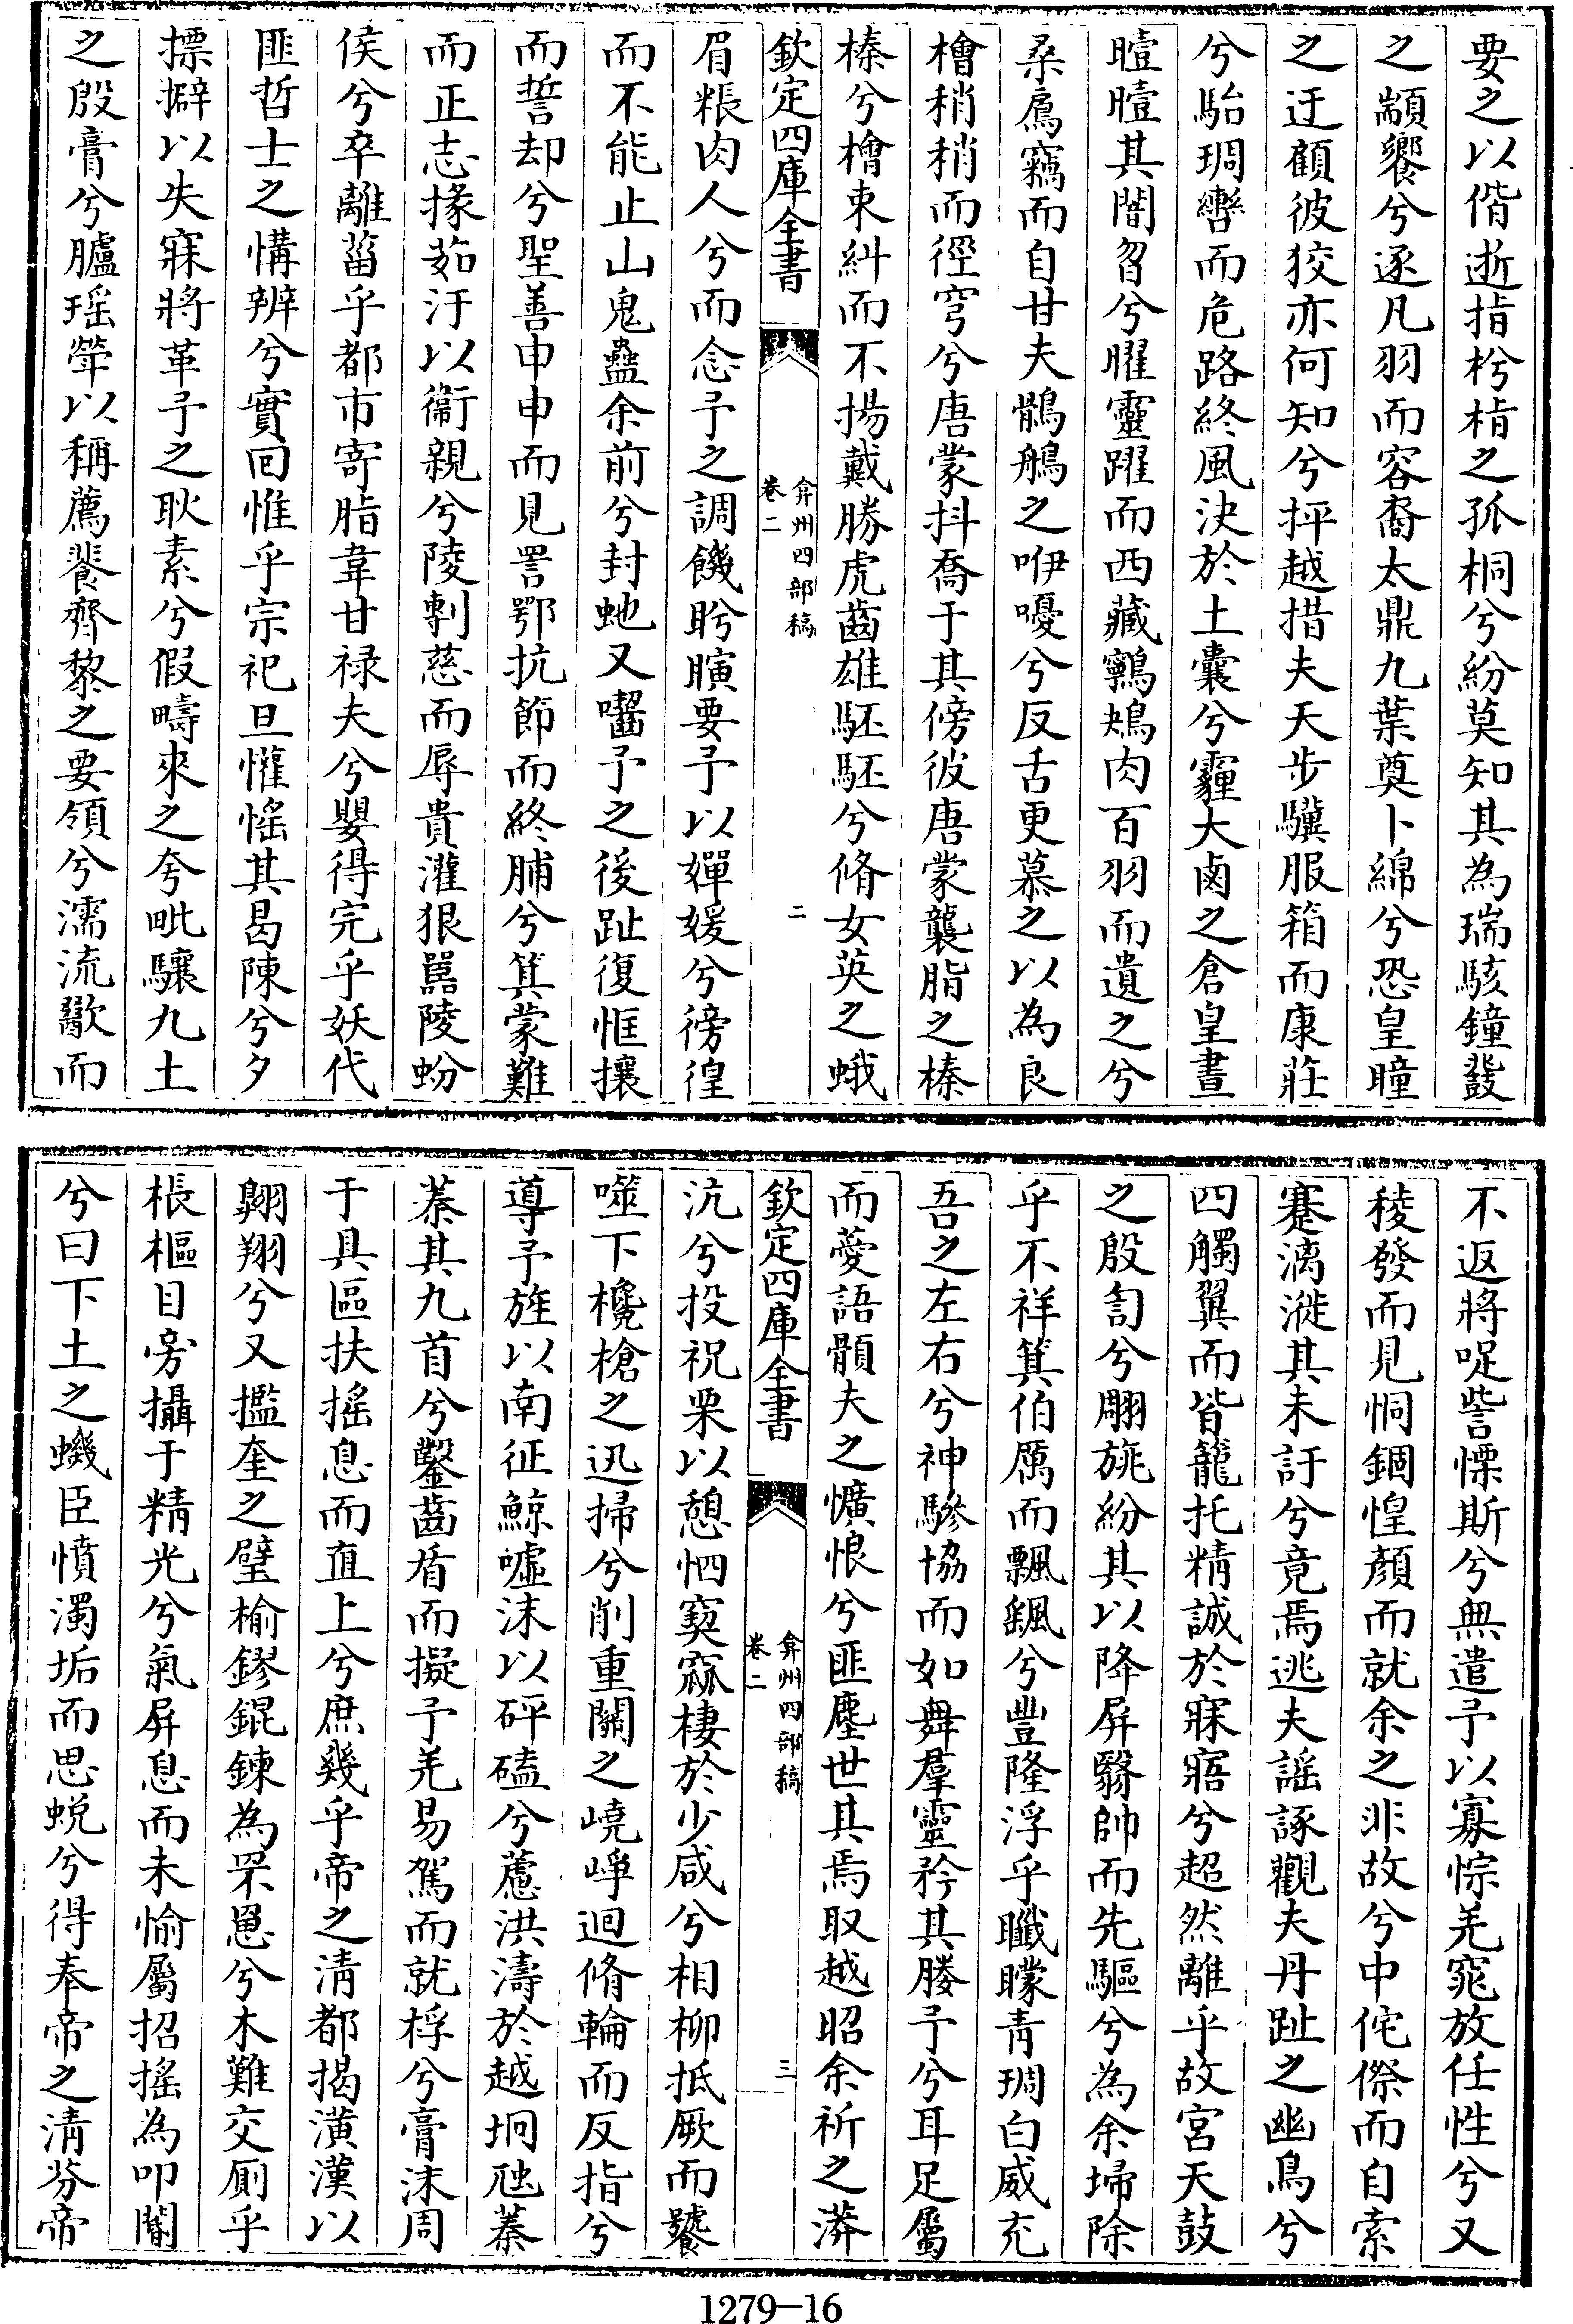 要之以偕逝指枍栺之孤桐兮紛莫知其為瑞駭鐘鼓
之顓饗兮逐凡羽而容裔太鼎九葉奠卜綿兮恐皇瞳
之迂顧彼狡亦何知兮抨越措夫天步驥服箱而康莊
兮駘琱轡而危路終風決於土囊兮霾大鹵之倉皇晝
曀曀其闇曶兮曜靈躍而西藏鸋鴂肉百羽而遺之兮
桑鳸竊而自甘夫鶻鵃之咿嚘兮反舌更慕之以為良
檜稍稍而徑穹兮唐蒙抖喬于其傍彼唐蒙襲脂之榛
榛兮檜束糾而不揚戴勝虎齒雄駓駓兮脩女英之蛾
欽定四庫全書
弇州四部稿
卷二
二
眉粻肉人兮而念予之調饑盻瞚要予以嬋媛兮徬徨
而不能止山鬼蠱余前兮封虵又囓予之後趾復恇攘
而誓却兮聖善申申而見詈鄂抗節而終脯兮箕蒙難
而正志掾茹汙以衞親兮陵剸慈而辱貴灌狠嚚陵蚡
侯兮卒離菑乎都市寄脂韋甘祿夫兮嬰得完乎妖代
匪哲士之慲辨兮實回惟乎宗祀旦懽愮其曷陳兮夕
摽擗以失寐將革予之耿素兮假疇來之夸毗驤九土
之殷膏兮臚瑶犖以稱薦裴齊黎之要領兮濡流歠而
不返將哫訾慄斯兮無遣予以寡悰羌窕放任性兮又
稜發而見恫錮惶顏而就余之非故兮中侘傺而自索
蹇漓漇其未訏兮竟焉逃夫謡諑觀夫丹趾之幽鳥兮
四觸翼而皆籠托精誠於寐寤兮超然離乎故宮天鼓
之殷訇兮翢旐紛其以降屏翳帥而先驅兮為余埽除
乎不祥箕伯厲而飄䬙兮豐隆浮乎矀矇青琱白威充
吾之左右兮神驂協而如舞羣靈矜其媵予兮耳足屬
而薆語顝夫之懭悢兮匪塵世其焉取越昭余祈之漭
欽定四庫全書
弇州四部稿
卷二
三
沆兮投祝栗以憩怬窫窳棲於少咸兮相柳抵厥而饕
噬下欃槍之迅掃兮削重關之嶢崢迴脩輪而反指兮
導予旌以南征鯨嘘沫以砰磕兮藘洪濤於越坰虺蓁
蓁其九首兮鑿齒盾而擬予羌易駕而就桴兮膏沫周
于具區扶摇息而直上兮庶幾乎帝之清都揭潢漢以
翺翔兮又攬奎之璧榆鏐錕鍊為罘罳兮木難交厠乎
棖樞目旁攝于精光兮氣屏息而未愉屬招摇為叩闇
兮曰下土之蟣臣憤濁垢而思蜕兮得奉帝之清芬帝
1279-16